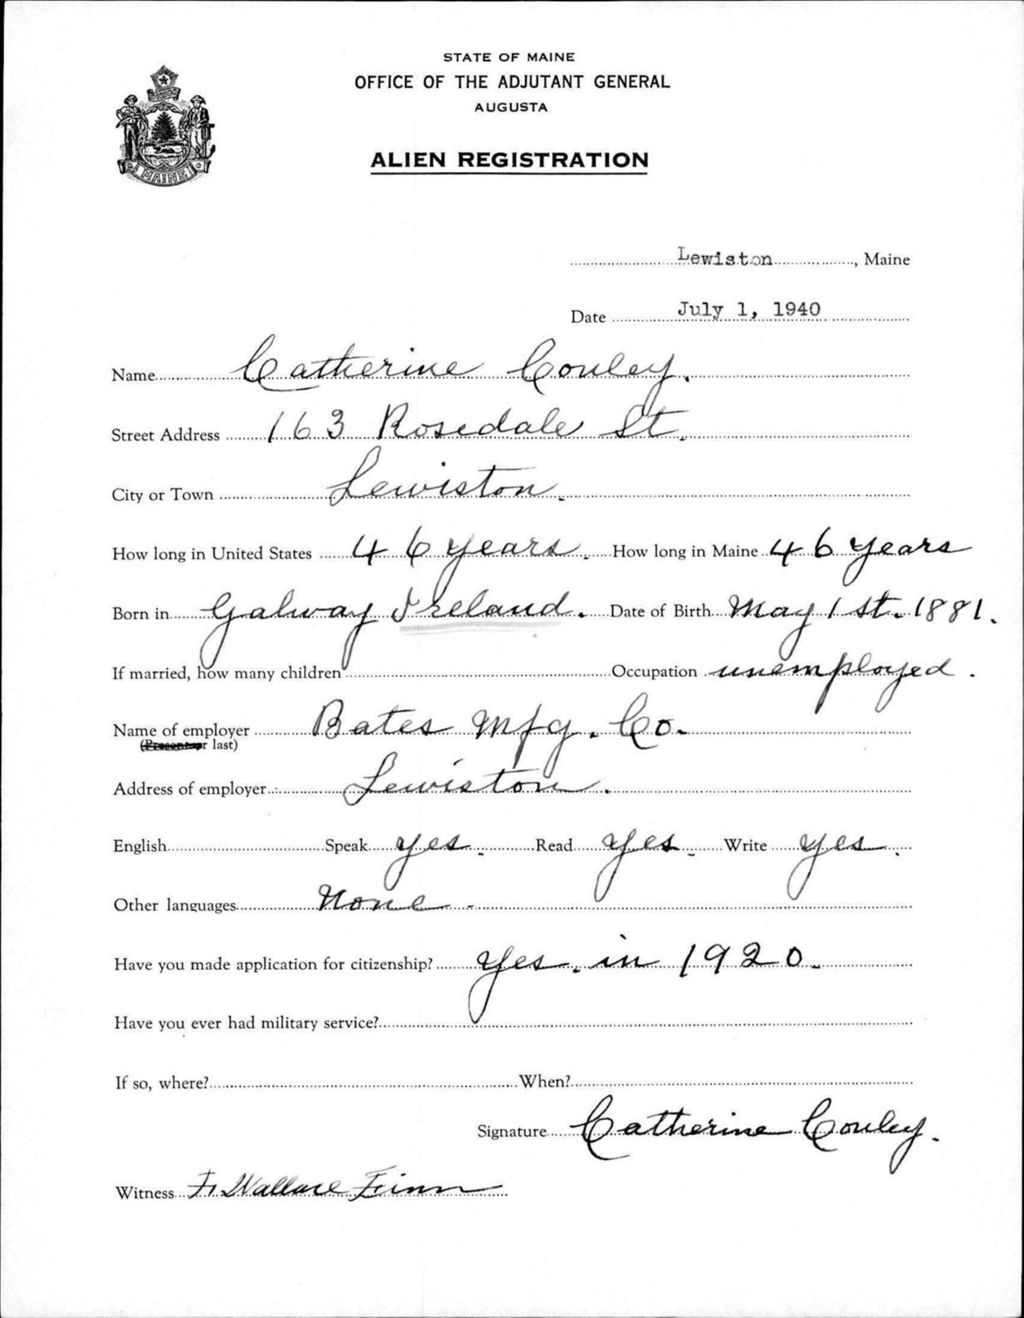 STATE OF MAINE
OFFICE OF THE ADJUTANT GENERAL
AUGUSTA
ALIEN REGISTRATION
MAINE
Lewiston, Maine
Date July 1, 1940
Name Catherine Conley.
Street Address 163 Rosedale St.
City or Town Lewiston.
How long in United States 46 years. How long in Maine 46 years
Born in Galway Ireland. Date of Birth May 1st. 1881.
If married, how many children Occupation unemployed.
Name of employer Bates Mfg. Co.
(Present or last)
Address of employer Lewiston.
English Speak yes. Read yes. Write yes.
Other languages None.
Have you made application for citizenship? Yes. in 1920.
Have you ever had military service?
If so, where? When?
Signature Catherine Conley.
Witness F. Wallace Finn